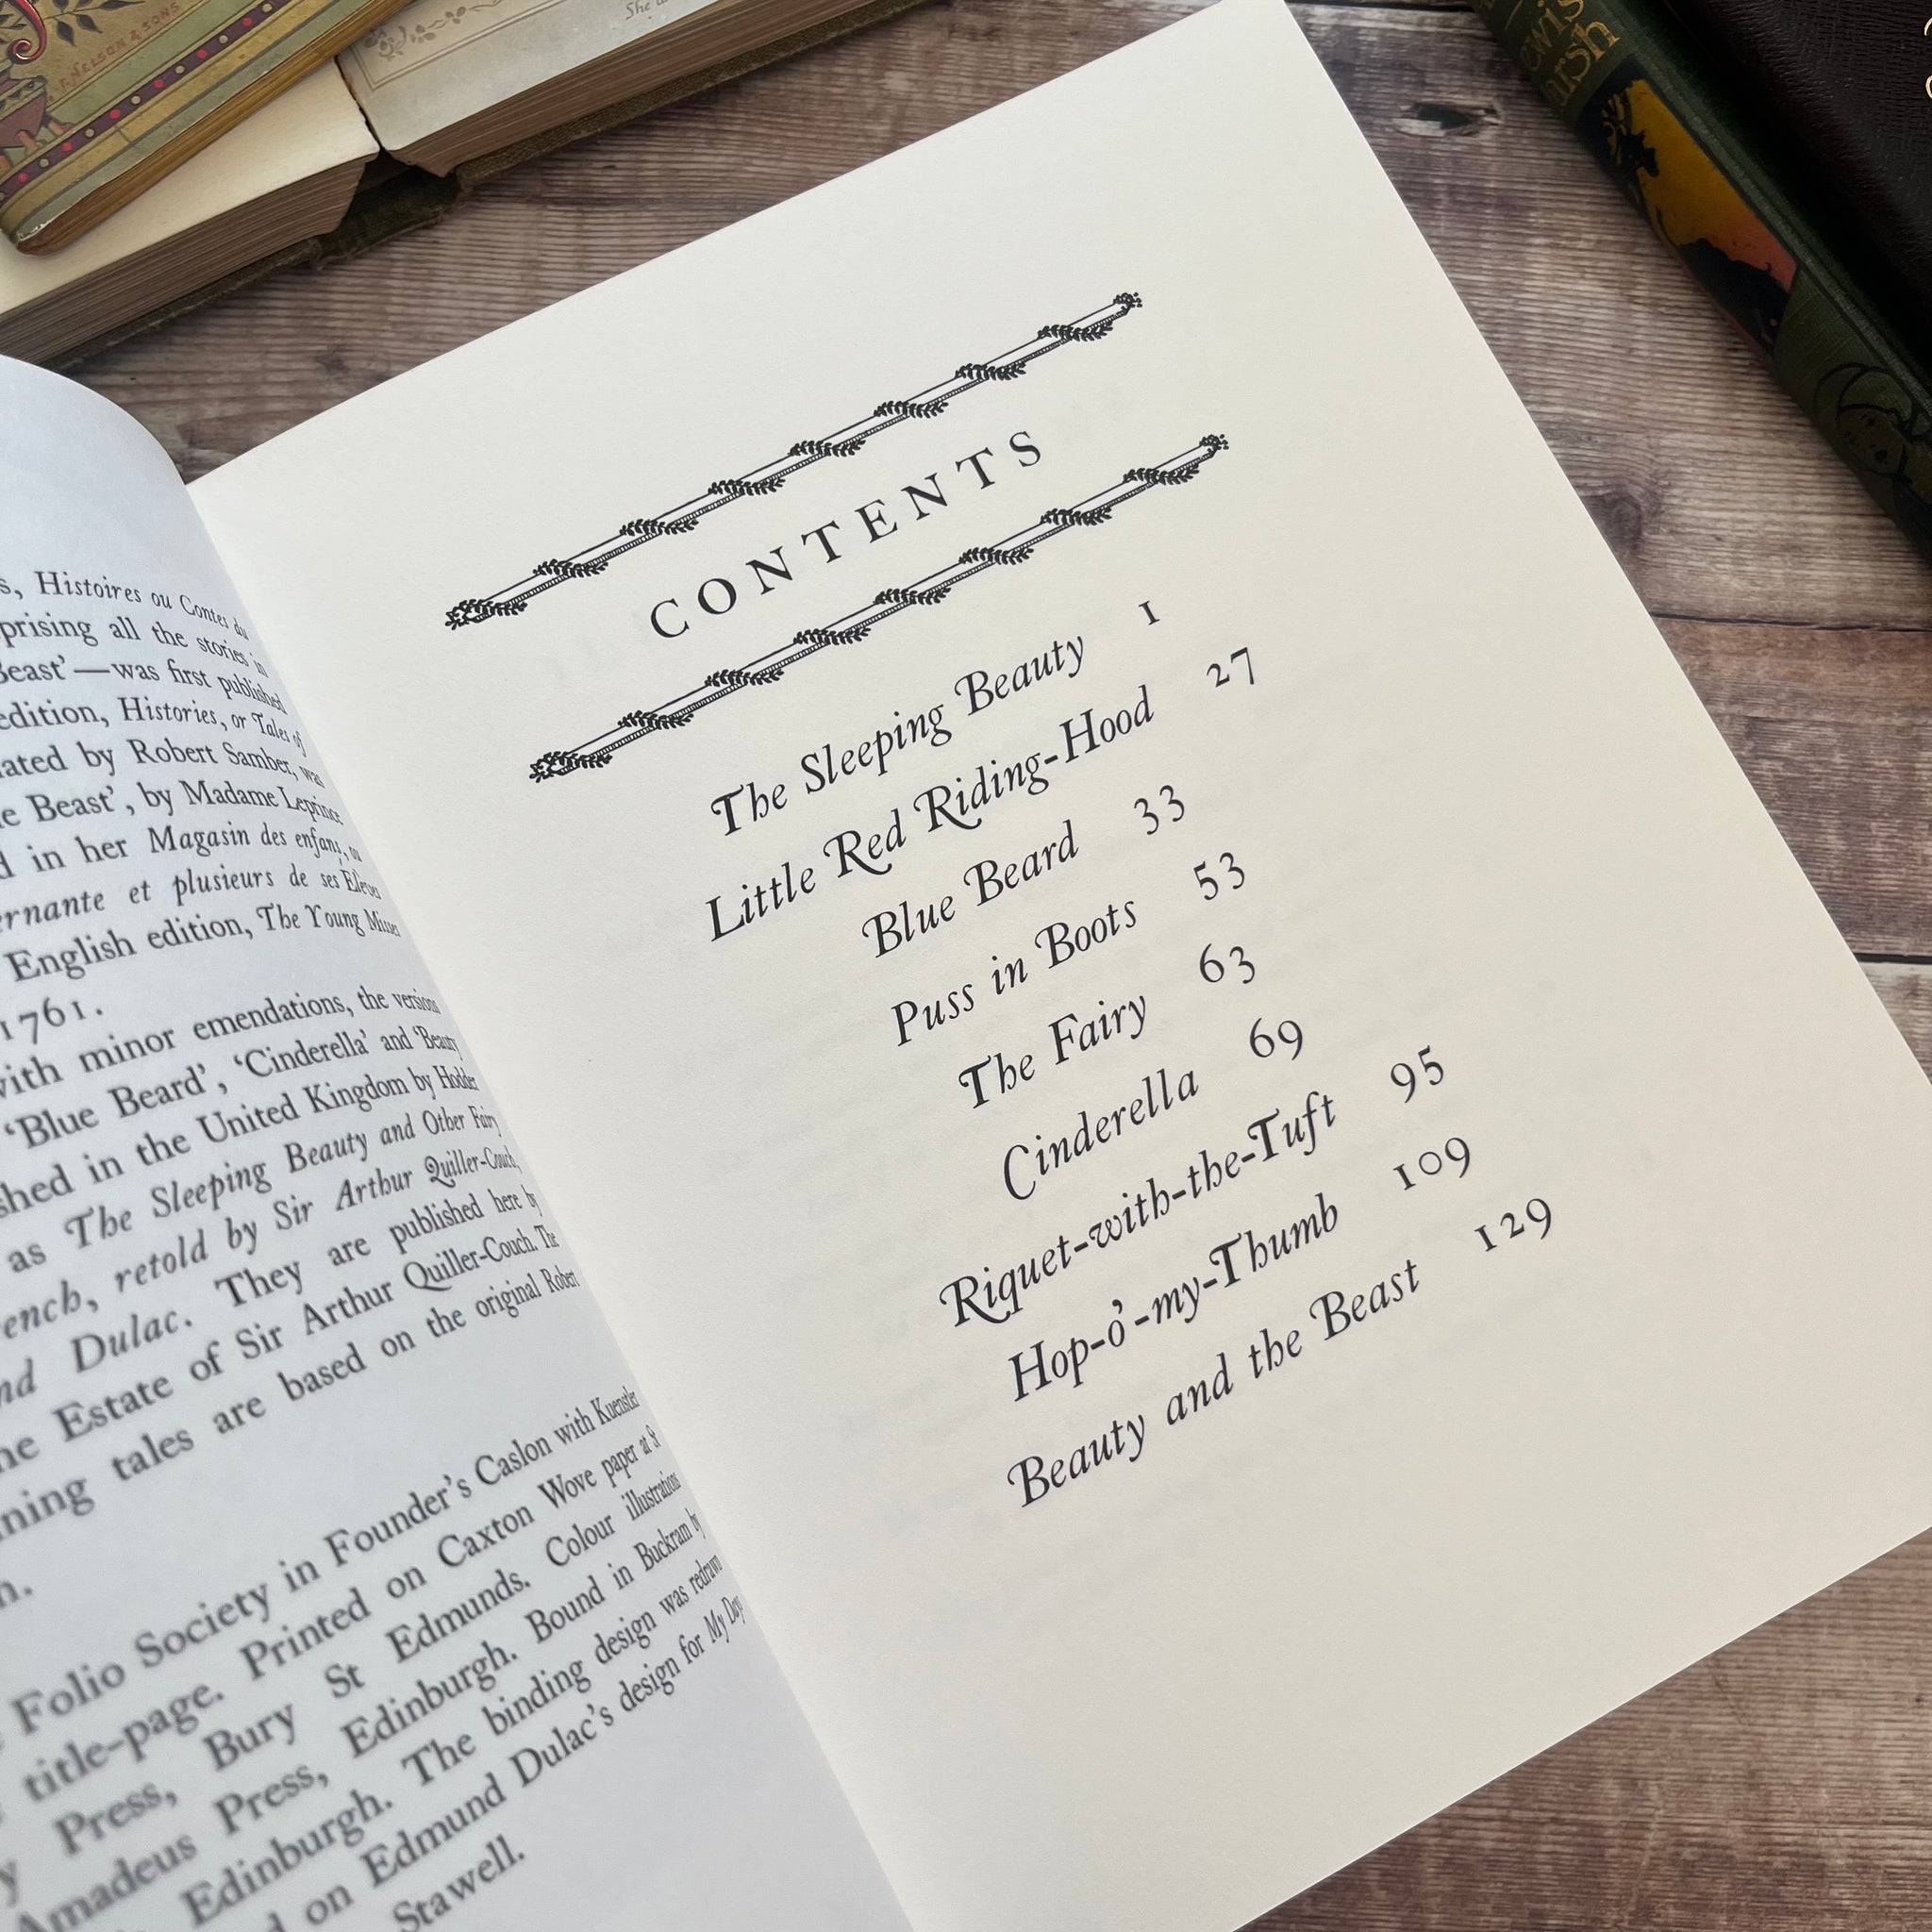 F. NELSON & SONS
She
ewis
arsh
s, Histoires ou Contes du
prising all the stories in
Beast’—was first published
edition, Histories, or Tales of
ated by Robert Samber, was
e Beast’, by Madame Leprince
d in her Magasin des enfans, ou
ernante et plusieurs de ses Elèves
English edition, The Young Misses
1761.
with minor emendations, the versions
‘Blue Beard’, ‘Cinderella’ and ‘Beauty
shed in the United Kingdom by Hodder
as The Sleeping Beauty and Other Fairy
ench, retold by Sir Arthur Quiller-Couch,
nd Dulac. They are published here by
he Estate of Sir Arthur Quiller-Couch. The
ning tales are based on the original Robert
n.
Folio Society in Founder’s Caslon with Kuenstler
title-page. Printed on Caxton Wove paper at St
y Press, Bury St Edmunds. Colour illustrations
Amadeus Press, Edinburgh. Bound in Buckram by
Edinburgh. The binding design was redrawn
d on Edmund Dulac’s design for My Days
Stawell.
CONTENTS
The Sleeping Beauty 1
Little Red Riding-Hood 27
Blue Beard 33
Puss in Boots 53
The Fairy 63
Cinderella 69
Riquet-with-the-Tuft 95
Hop-o’-my-Thumb 109
Beauty and the Beast 129